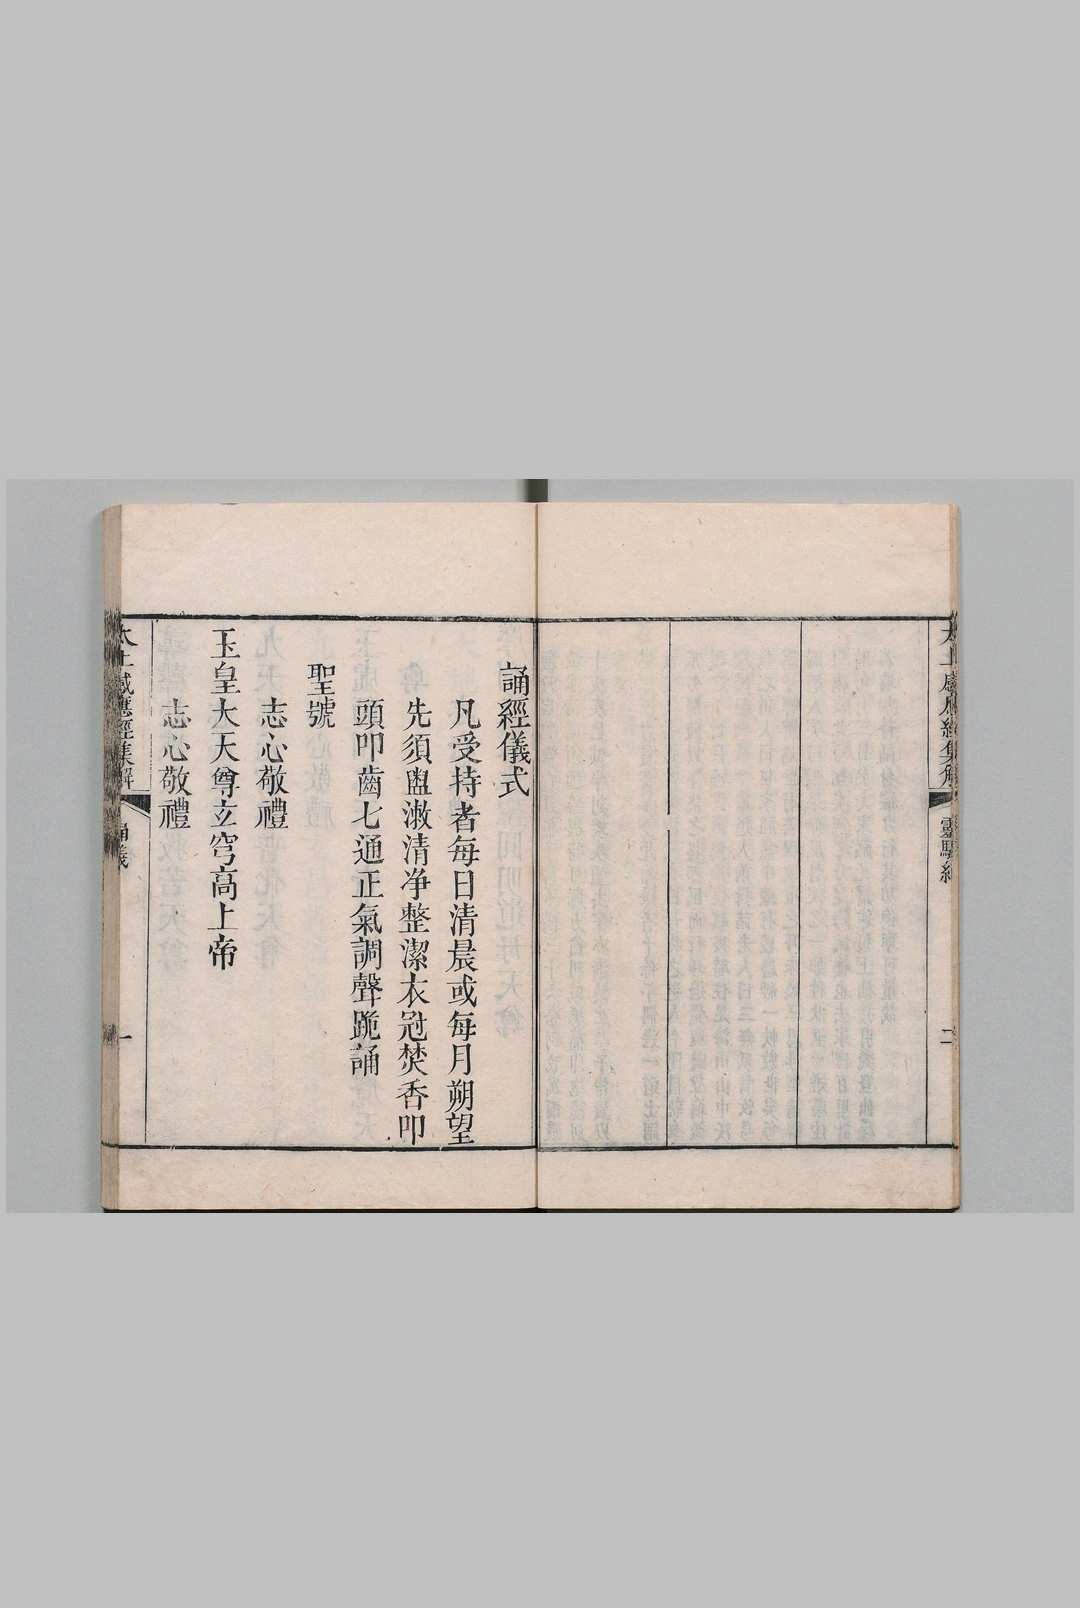 太上感應經集解
靈驗紀
二
誦經儀式
凡受持者每日清晨或每月朔望
先須盥漱清净整潔衣冠焚香叩
頭叩齒七通正氣調聲跪誦
聖號
志心敬禮
玉皇大天尊玄穹高上帝
志心敬禮
太上感應經集解
誦儀
一